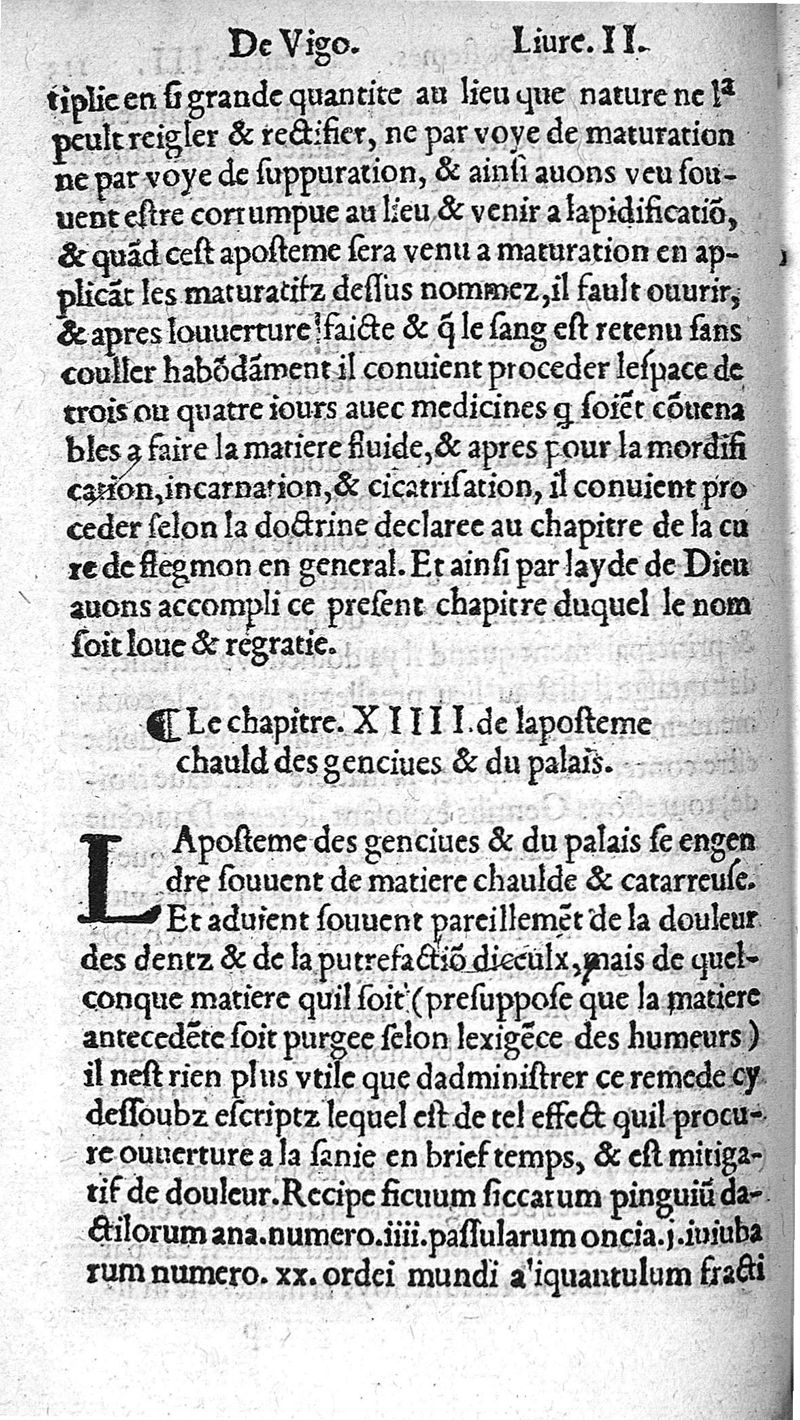 De Vigo. Liure. II.
tiplie en ſi grande quantite au lieu que nature ne lª
peult reigler & rectifier, ne par voye de maturation
ne par voye de ſuppuration, & ainſi auons veu ſou-
uent eſtre corrumpue au lieu & venir a lapidificatiõ,
& quãd ceſt apoſteme ſera venu a maturation en ap-
plicãt les maturatifz deſſus nommez, il fault ouurir,
& apres louuerture faicte & q̃ le ſang eſt retenu ſans
couller habõdãment il conuient proceder leſpace de
trois ou quatre iours auec medicines q ſoiẽt cõuena
bles a faire la matiere fluide, & apres pour la mordifi
cation, incarnation, & cicatriſation, il conuient pro
ceder ſelon la doctrine declaree au chapitre de la cu
re de flegmon en general. Et ainſi par layde de Dieu
auons accompli ce preſent chapitre duquel le nom
ſoit loue & regratie.
¶ Le chapitre. XIIII. de lapoſteme
chauld des genciues & du palais.
LApoſteme des genciues & du palais ſe engen
dre ſouuent de matiere chaulde & catarreuſe.
Et aduient ſouuent pareillemẽt de la douleur
des dentz & de la putrefactiõ dieculx, mais de quel-
conque matiere quil ſoit (preſuppoſe que la matiere
antecedẽte ſoit purgee ſelon lexigẽce des humeurs)
il neſt rien plus vtile que dadminiſtrer ce remede cy
deſſoubz eſcriptz lequel eſt de tel effect quil procu-
re ouuerture a la ſanie en brief temps, & eſt mitiga-
tif de douleur. Recipe ficuum ſiccarum pinguiũ da-
ctilorum ana. numero. iiii. paſſularum oncia. j. iuiuba
rum numero. xx. ordei mundi aliquantulum fracti